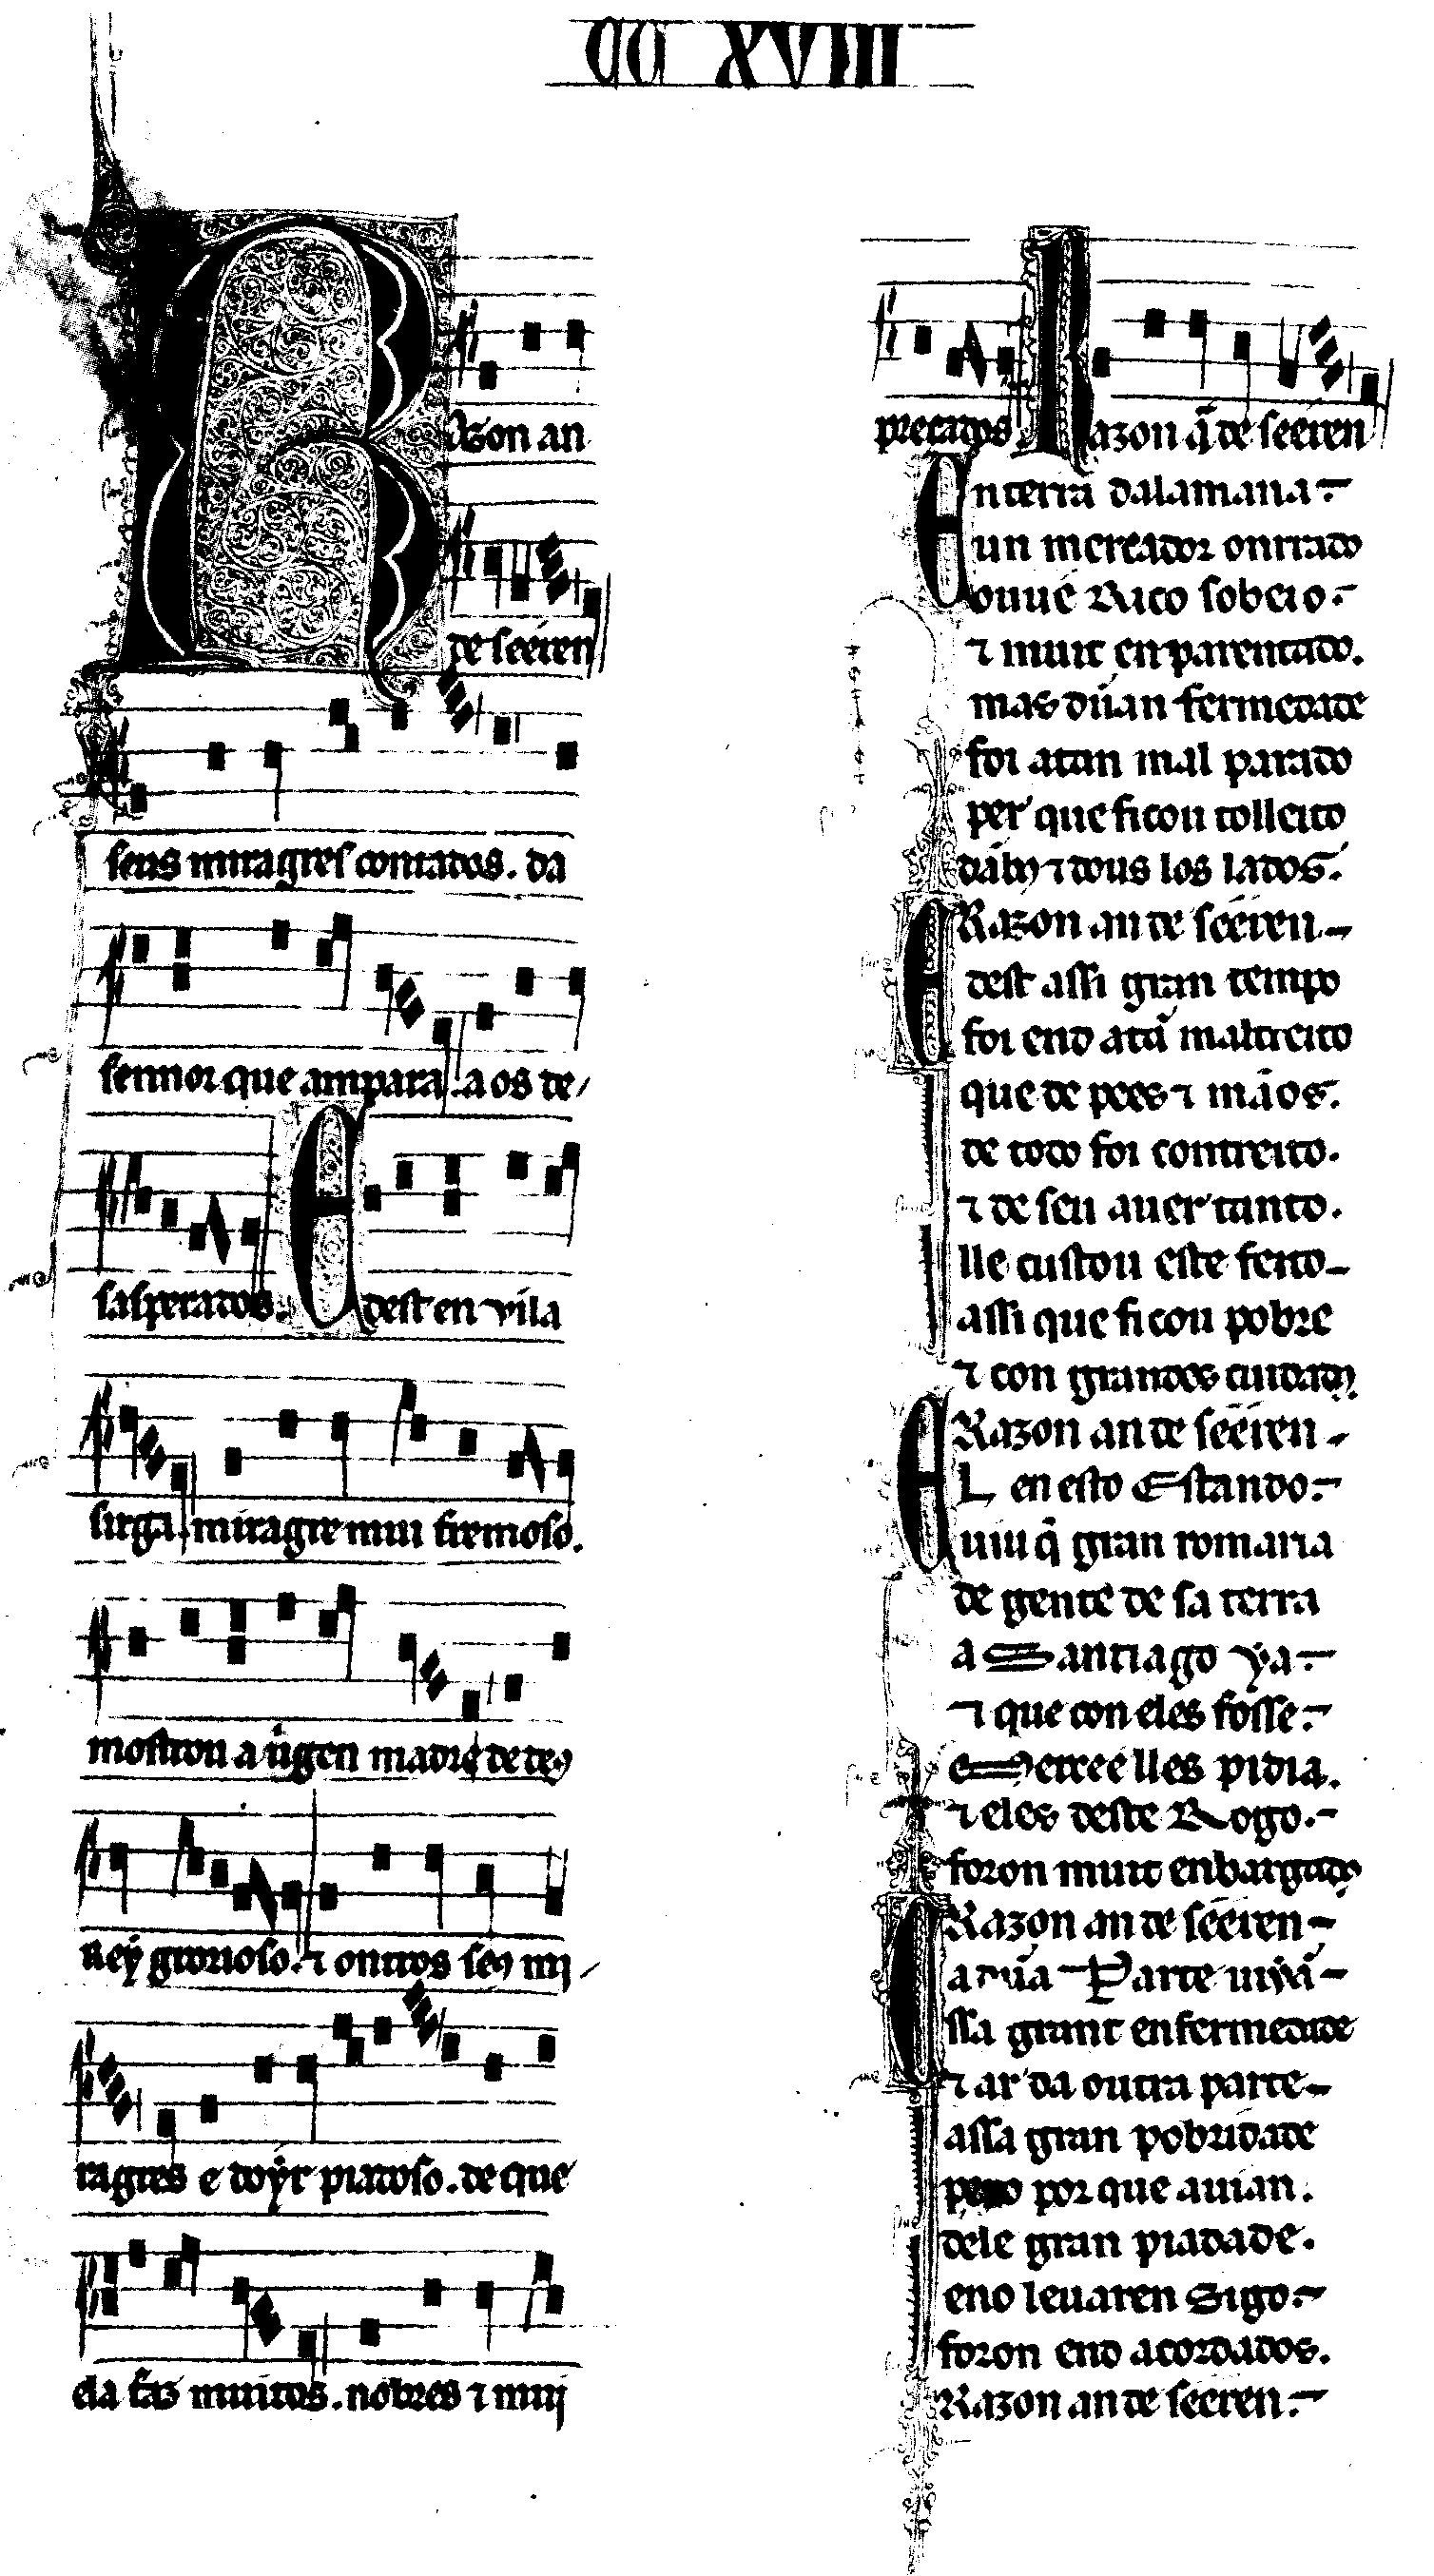 CC XVIII
Razon an
de seeren
seus miragres contados. da
sennor que ampara. aos de/
sasperados. E dest en vila
sirga. miragre mui fremoso.
mostrou a uı̃gen madre de deꝯ
Rey grorioso. ⁊ outros seꝯ mi/
ragres e doýr piadoso. de que
ela faz muitos. nobres ⁊ mui
preçados. Razon q̃ de seeren
En terra dalamana
un mercador onrrado
ouue Rico sobeio.
⁊ muit enparentado.
mas dũan fermedade
foi atan mal parado
per que ficou tolleito
dãbꝯ ⁊ dous los lados.
Razon an de seeren
E dest assi gran tempo
foi end atã maltreito
que de pees ⁊ mãos.
de todo foi contreito.
⁊ de seu auer tanto.
lle custou este feito
assi que ficou pobre
⁊ con grandes cuidadꝯ.
Razon an de seeren
EL en esto Estando.
uiu q̃ gran romaria
de gente de sa terra
a Santiago ya.
⁊ que con eles fosse.
e Mercee lles pidia.
⁊ eles deste Rogo.
foron muit enbargadꝯ
Razon an de seeren
Ca dũa Parte uiyã
ssa grant enfermedade
⁊ ar da outra parte
assa gran pobridade
pero por que auian.
dele gran piadade.
eno leuaren Sigo.
foron end acordados.
Razon an de seeren.